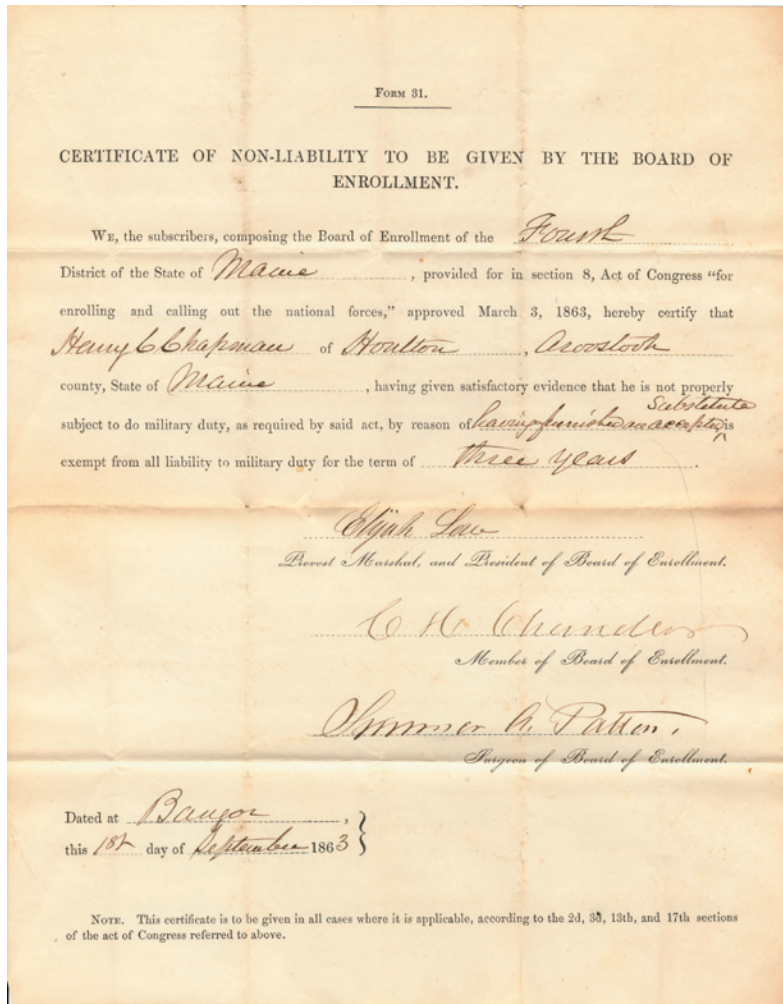 FORM 31.
CERTIFICATE OF NON-LIABILITY TO BE GIVEN BY THE BOARD OF
ENROLLMENT.
WE, the subscribers, composing the Board of Enrollment of the Fourth
District of the State of Maine, provided for in section 8, Act of Congress "for
enrolling and calling out the national forces," approved March 3, 1863, hereby certify that
Henry C Chapman of Houlton, Aroostook
county, State of Maine, having given satisfactory evidence that he is not properly
substitute
subject to do military duty, as required by said act, by reason of having furnished an accepted is
exempt from all liability to military duty for the term of three years.
Elijah Low
Provost Marshal, and President of Board of Enrollment.
C H Chandler
Member of Board of Enrollment.
Sumner A. Patten.
Surgeon of Board of Enrollment.
Dated at Bangor,
this 1st day of September 1863
NOTE. This certificate is to be given in all cases where it is applicable, according to the 2d, 3d, 13th, and 17th sections
of the act of Congress referred to above.